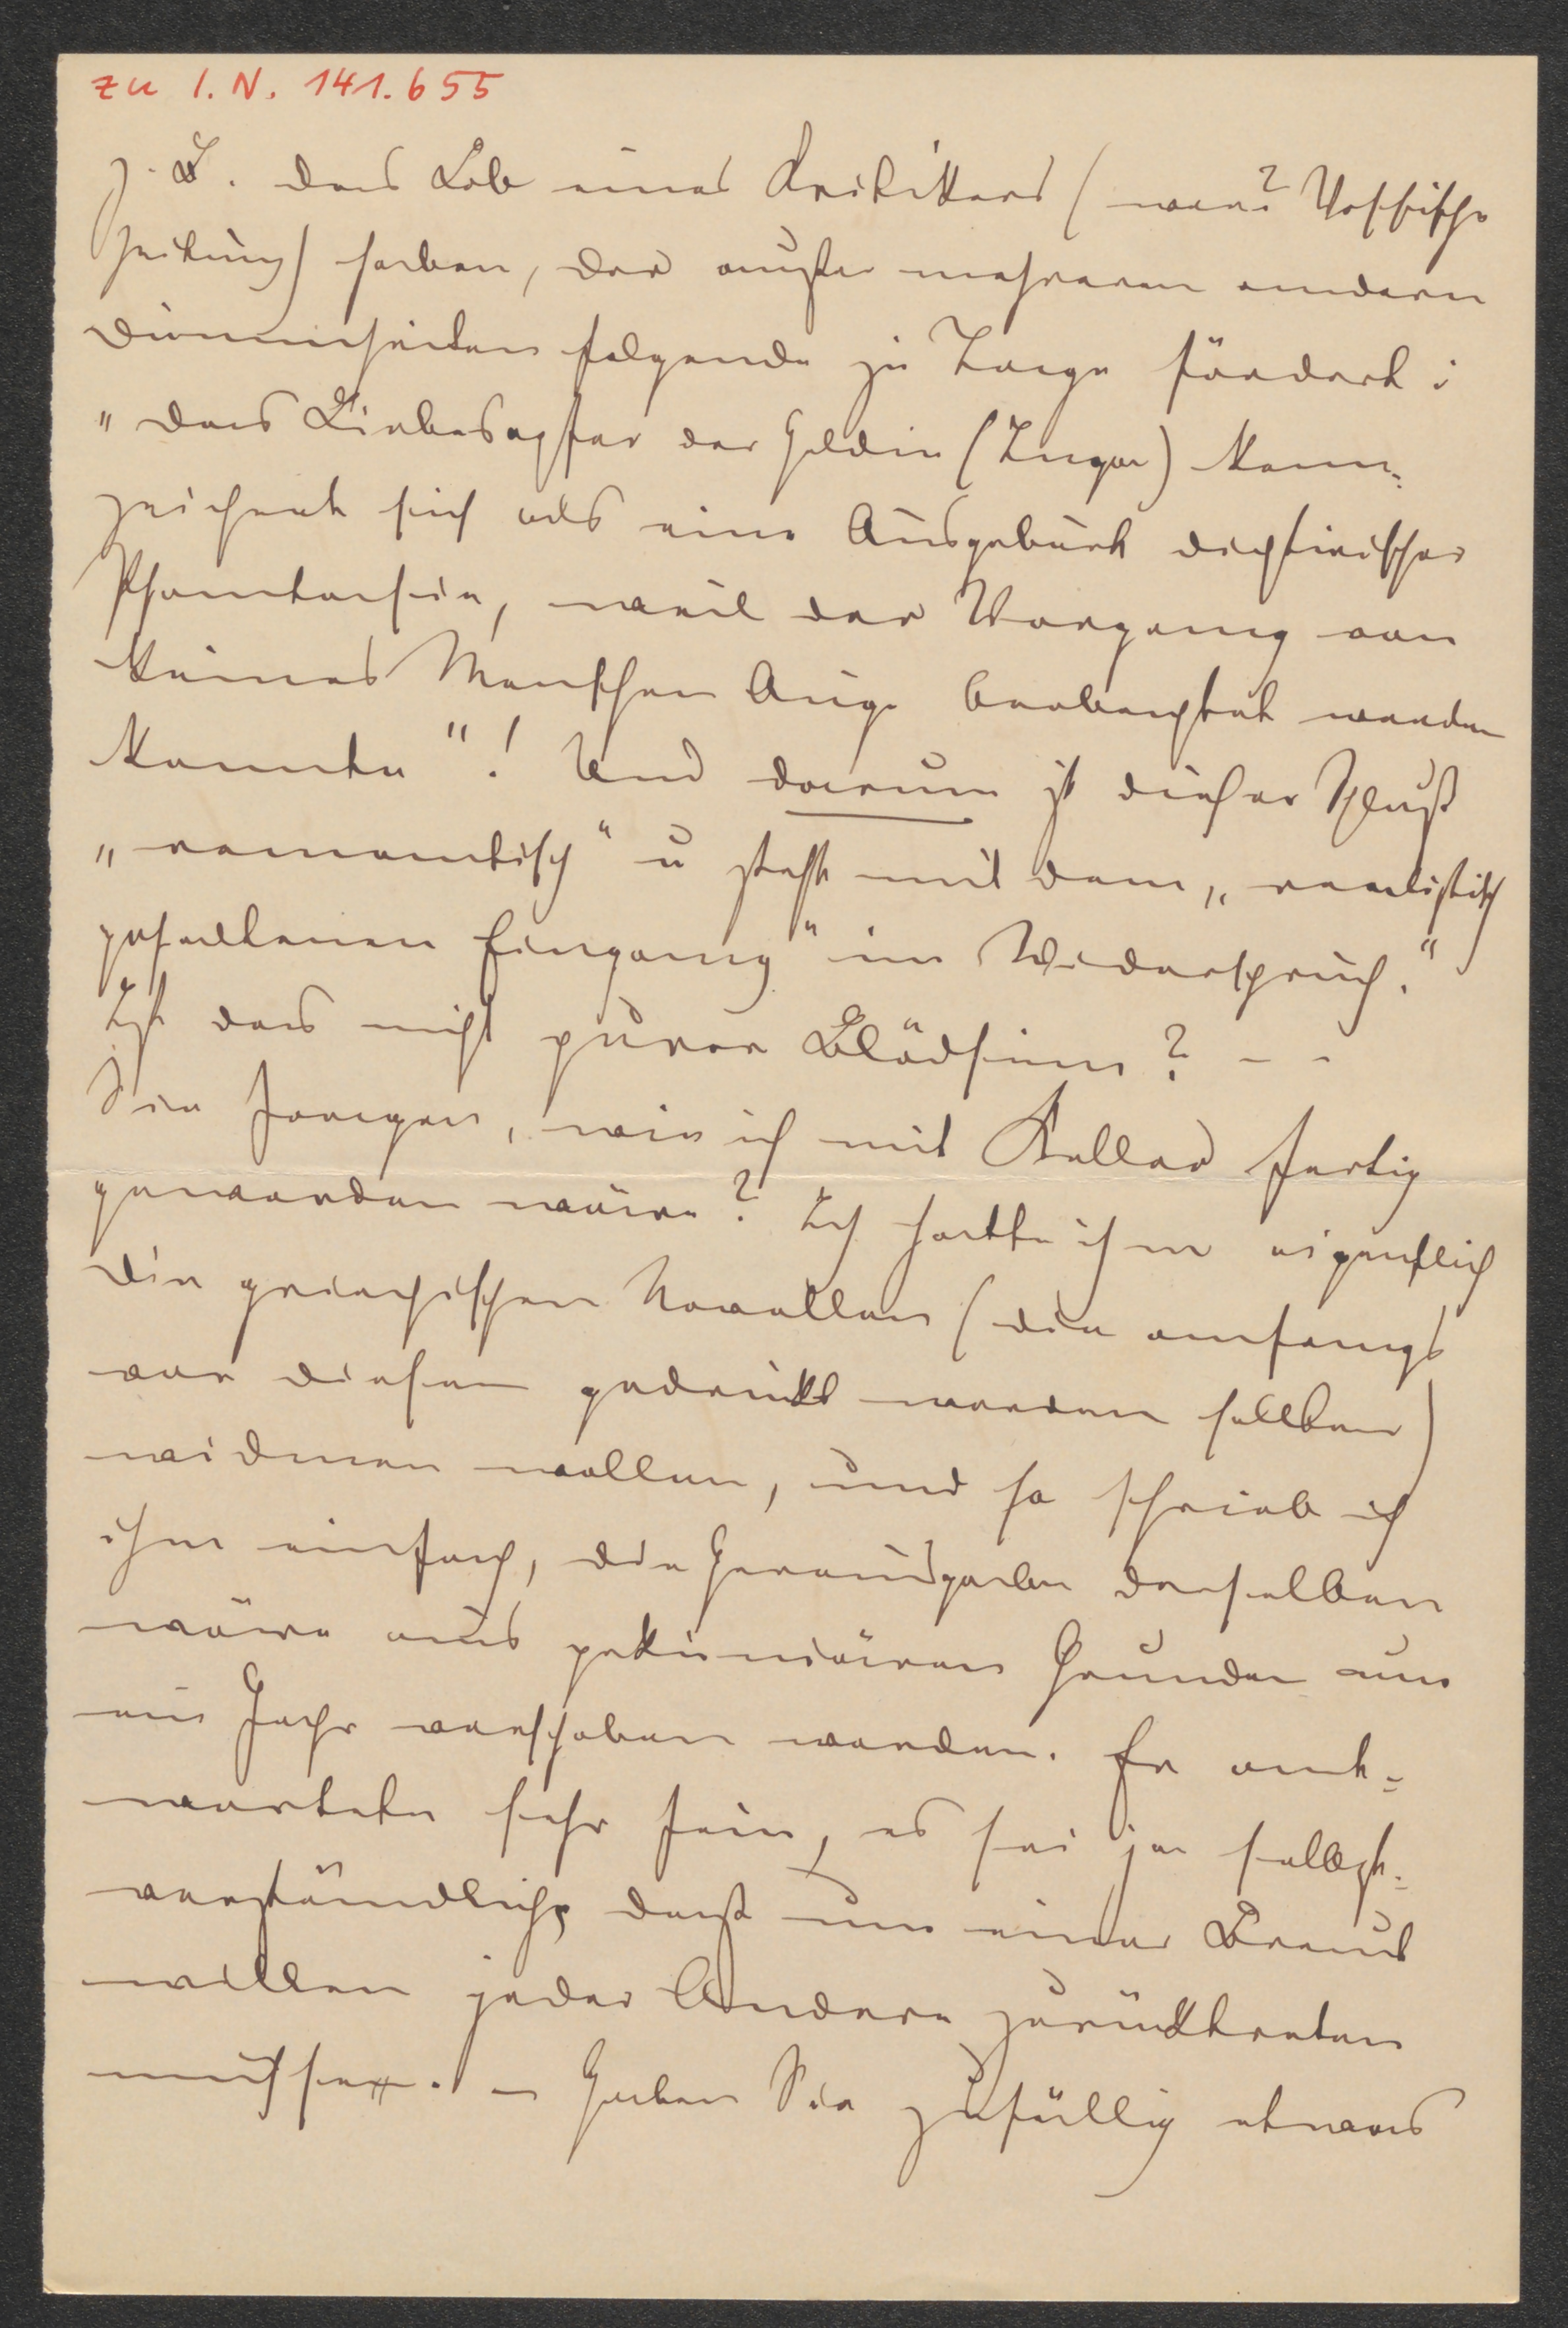 zu I. N. 141.655
z. B. das Lob eines Kritikers (wer? Vossische
Zeitung) haben, der außer mehreren andern
Dummheiten folgende zu Tage fördert:
"das Liebesopfer der Heldin (Inger) kenn=
zeichnet sich als eine Ausgeburt dichtrischer
Phantasie, weil der Vorgang von
keines Menschen Auge beobachtet werden
konnte"! Und darum ist dieser Schluß
„romantisch" u steht mit dem „realistisch
gehaltenen Eingang" im Widerspruch."
Ist das nicht purer Blödsinn? - -
Sie fragen, wie ich mit Keller fertig
geworden wäre? Ich hatte ihm eigentlich
die griechischen Novellen (die anfangs
vor diesen gedruckt werden sollten)
widmen wollen, und so schrieb ich
ihm einfach, die Herausgabe derselben
wäre aus pekuniären Gründen um
ein Jahr verschoben worden. Er ant=
wortete sehr fein, es sei ja selbst=
verständlich, daß um einer Braut
willen jeder Andere zurücktreten
müsse. – Haben Sie zufällig etwas